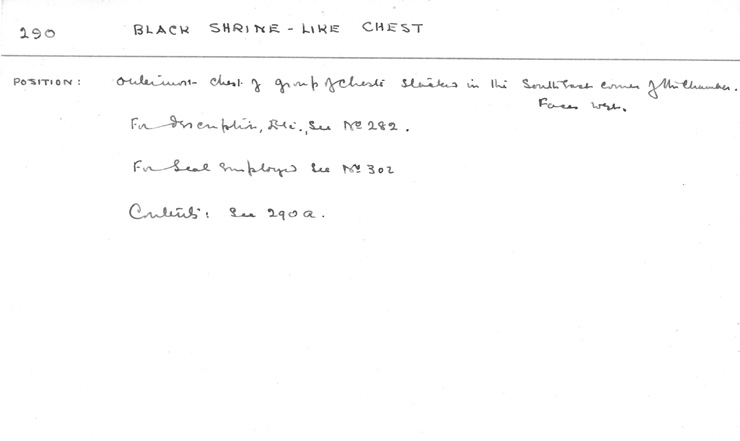 290 BLACK SHRINE-LIKE CHEST
POSITION: Outermost chest of group of chests stacked in the South East corner of the Chamber.
Faces West.
For description, Etc., see Nº 282.
For Seal employed see Nº 302
Contents: See 290a.